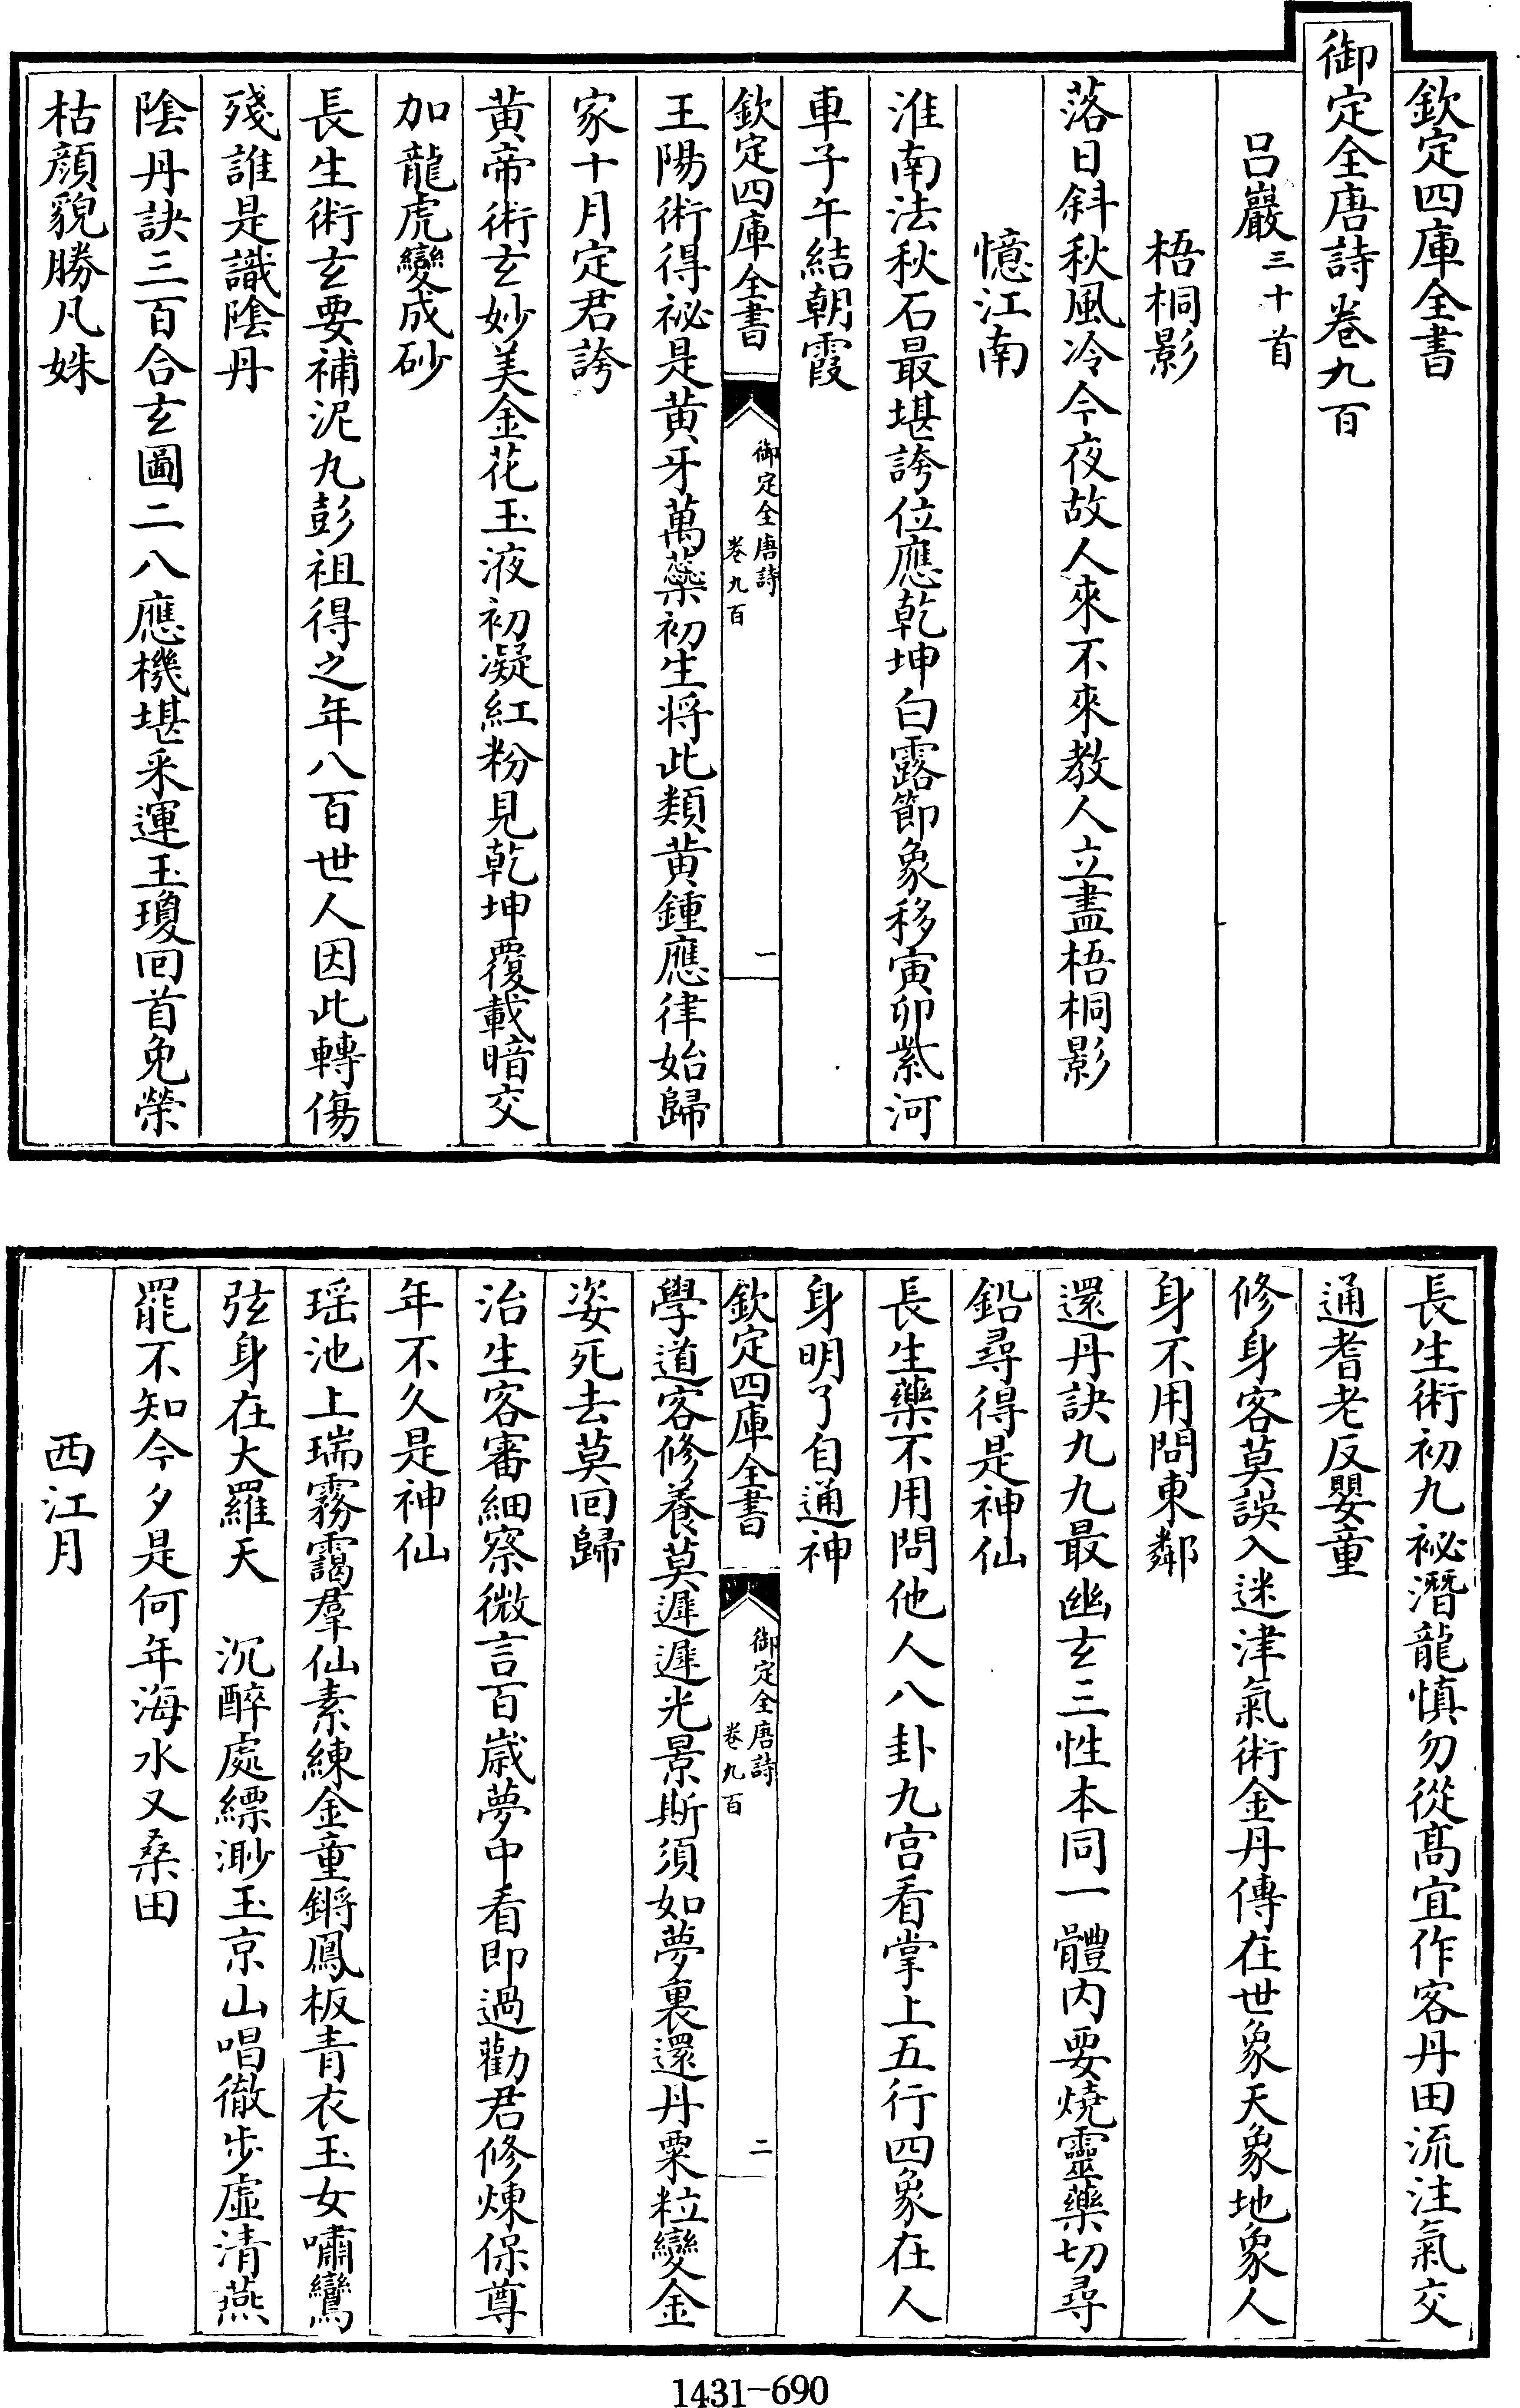 欽定四庫全書
御定全唐詩卷九百
吕巖三十首
梧桐影
落日斜秋風冷今夜故人來不來教人立盡梧桐影
憶江南
淮南法秋石最堪誇位應乾坤白露節象移寅卯紫河
車子午結朝霞
欽定四庫全書
御定全唐詩
卷九百
一
王陽術得祕是黄牙萬蘂初生将此類黄鍾應律始歸
家十月定君誇
黄帝術玄妙美金花玉液初凝紅粉見乾坤覆載暗交
加龍虎變成砂
長生術玄要補泥丸彭祖得之年八百世人因此轉傷
殘誰是識陰丹
陰丹訣三百合玄圖二八應機堪采運玉瓊回首免榮
枯顔貌勝凡姝
長生術初九祕潛龍慎勿從髙宜作客丹田流注氣交
通耆老反嬰童
修身客莫誤入迷津氣術金丹傳在世象天象地象人
身不用問東鄰
還丹訣九九最幽玄三性本同一體内要燒靈藥切尋
鉛尋得是神仙
長生藥不用問他人八卦九宫看掌上五行四象在人
身明了自通神
欽定四庫全書
御定全唐詩
卷九百
二
學道客修養莫遲遲光景斯須如夢裏還丹粟粒變金
姿死去莫回歸
治生客審細察微言百歲夢中看即過勸君修煉保尊
年不久是神仙
瑶池上瑞霧靄羣仙素練金童鏘鳳板青衣玉女嘯鸞
弦身在大羅天　沉醉處縹渺玉京山唱徹步虛清燕
罷不知今夕是何年海水又桑田
西江月
1431-690